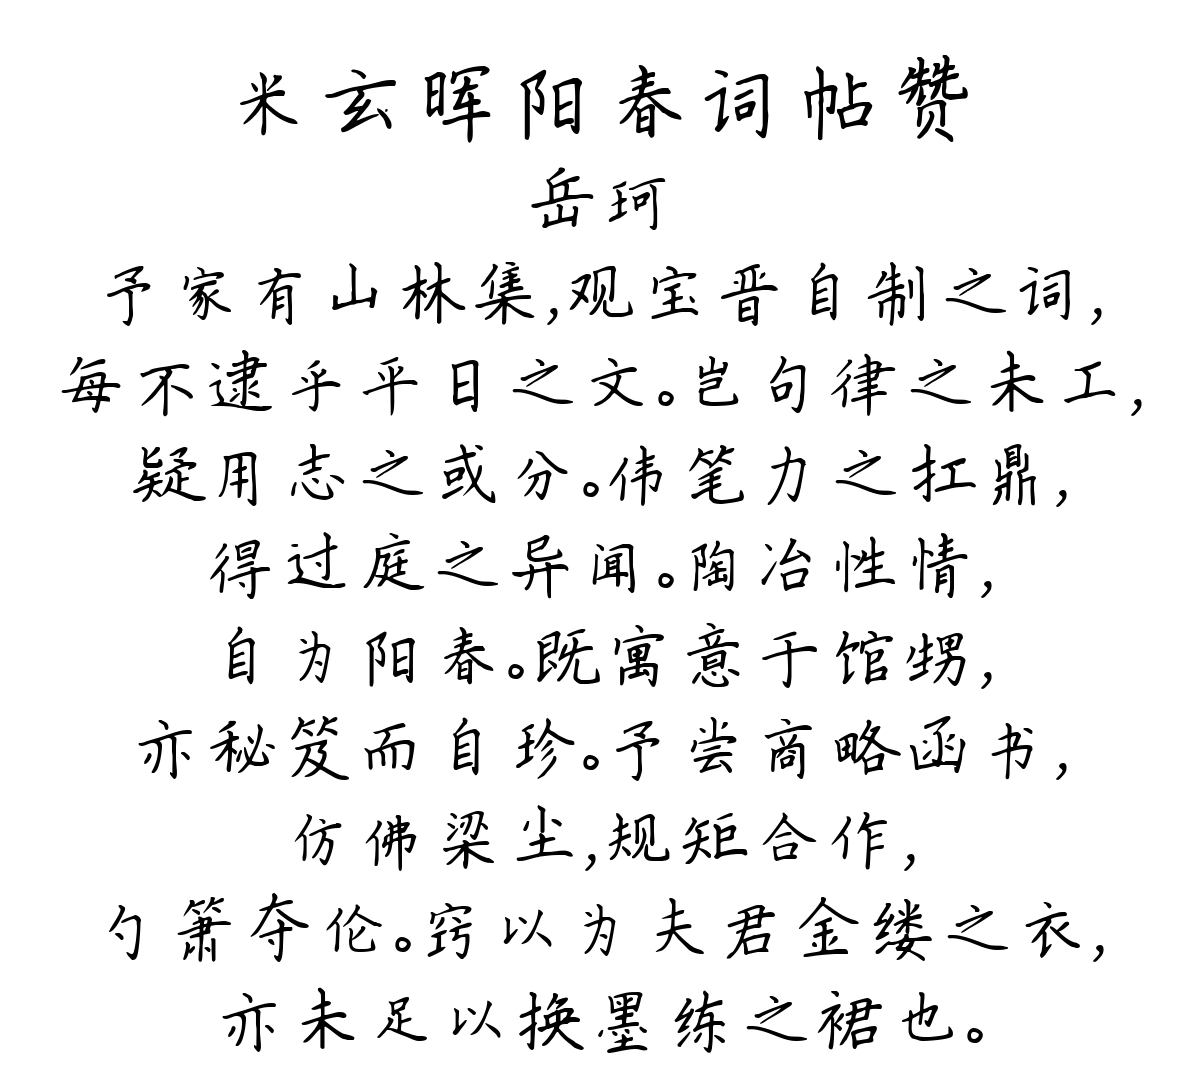 米玄晖阳春词帖赞
岳珂
予家有山林集,观宝晋自制之词,
每不逮乎平日之文。岂句律之未工,
疑用志之或分。伟笔力之扛鼎,
得过庭之异闻。陶冶性情,
自为阳春。既寓意于馆甥,
亦秘笈而自珍。予尝商略函书,
仿佛梁尘,规矩合作,
勺箫夺伦。窍以为夫君金缕之衣,
亦未足以换墨练之裙也。